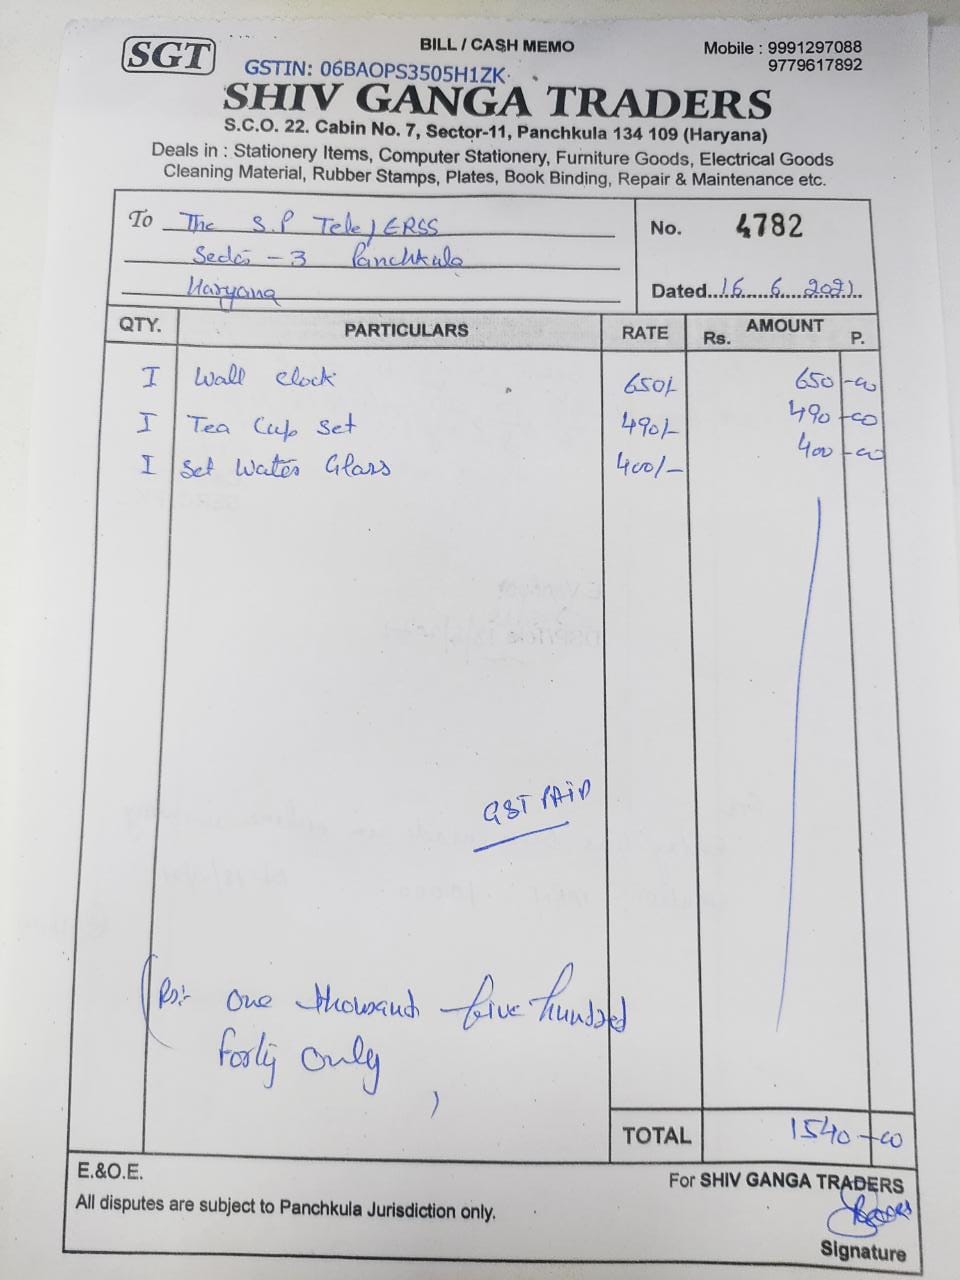 SGT
BILL / CASH MEMO
Mobile : 9991297088
9779617892
GSTIN: 06BAOPS3505H1ZK
SHIV GANGA TRADERS
S.C.O. 22. Cabin No. 7, Sector-11, Panchkula 134 109 (Haryana)
Deals in : Stationery Items, Computer Stationery, Furniture Goods, Electrical Goods
Cleaning Material, Rubber Stamps, Plates, Book Binding, Repair & Maintenance etc.
To The S.P Tele/ERSS
Sector - 3 Panchkula
Haryana
No. 4782
Dated 16 6 2021
QTY. PARTICULARS RATE AMOUNT
Rs. P.
1 Wall Clock 650/- 650-00
1 Tea Cup Set 490/- 490-00
1 Set Water Glass 400/- 400-00
GST PAID
(Rs:- One thousand five hundred
forty only)
TOTAL 1540-00
E.&O.E.
All disputes are subject to Panchkula Jurisdiction only.
For SHIV GANGA TRADERS
Signature